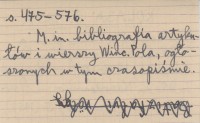 s. 475-576.
M. in. bibliografia artyku-
łów i wierszy Winc. Pola, ogło-
szonych w tym czasopiśmie.